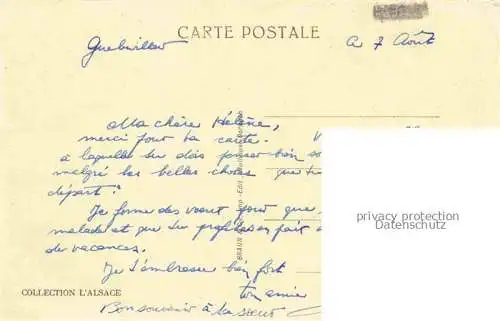 CARTE POSTALE
Guebwiller Ce 7 Août
Ma chère Hélène,
merci pour ta carte.
a laquelle tu dois penser bien so
malgré les belles choses que tu
départ!
Je forme des vœux pour que
malade et que tu profites en fait
de vacances.
Je t'embrasse bien fort
ton amie
Bon souvenir à ta sœur
COLLECTION L'ALSACE
privacy protection
Datenschutz